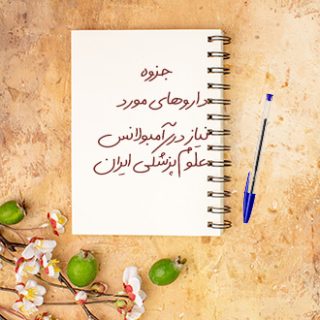 جزوه
داروهای مورد
نیاز در آمبولانس
علوم پزشکی ایران